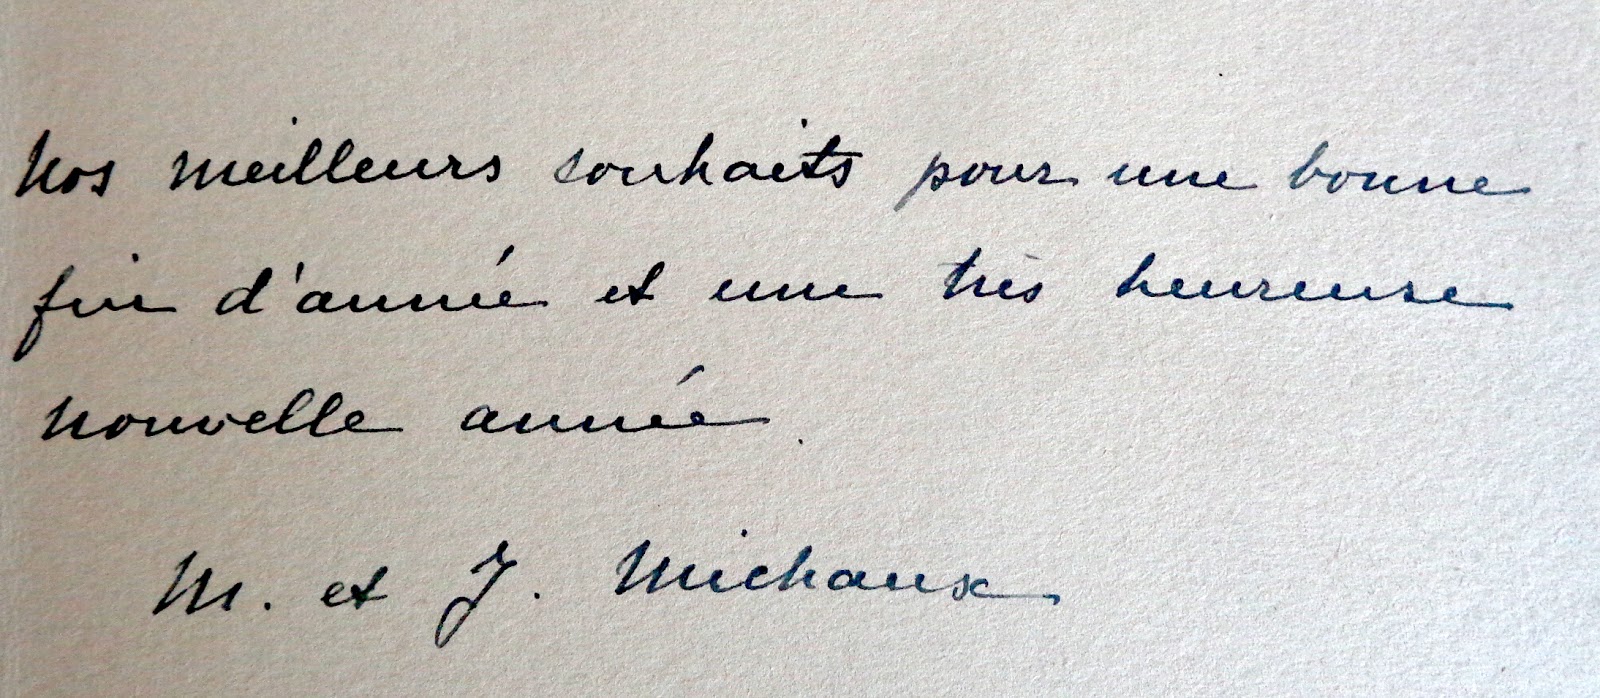 Nos meilleurs souhaits pour une bonne
fin d'année et une très heureuse
nouvelle année.
M. et J. Michaux